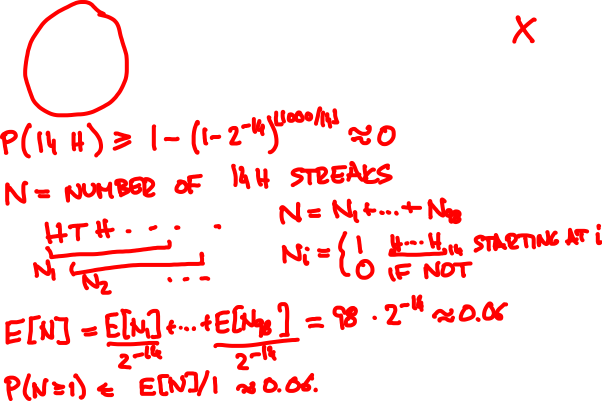 X
P(14 H) ≥ 1-(1-2^{-14})^{⌊1000/14⌋} ≈ 0
N = NUMBER OF 14H STREAKS
HTH · · · · ·
N = N_1 + ... + N_98
N_1 N_2 ...
N_i = { 1 H...H_14 STARTING AT i
0 IF NOT
E[N] = E[N_1] + ... + E[N_98] = 98 · 2^{-14} ≈ 0.06
2^{-14} 2^{-14}
P(N≥1) ≤ E[N]/1 ≈ 0.06.